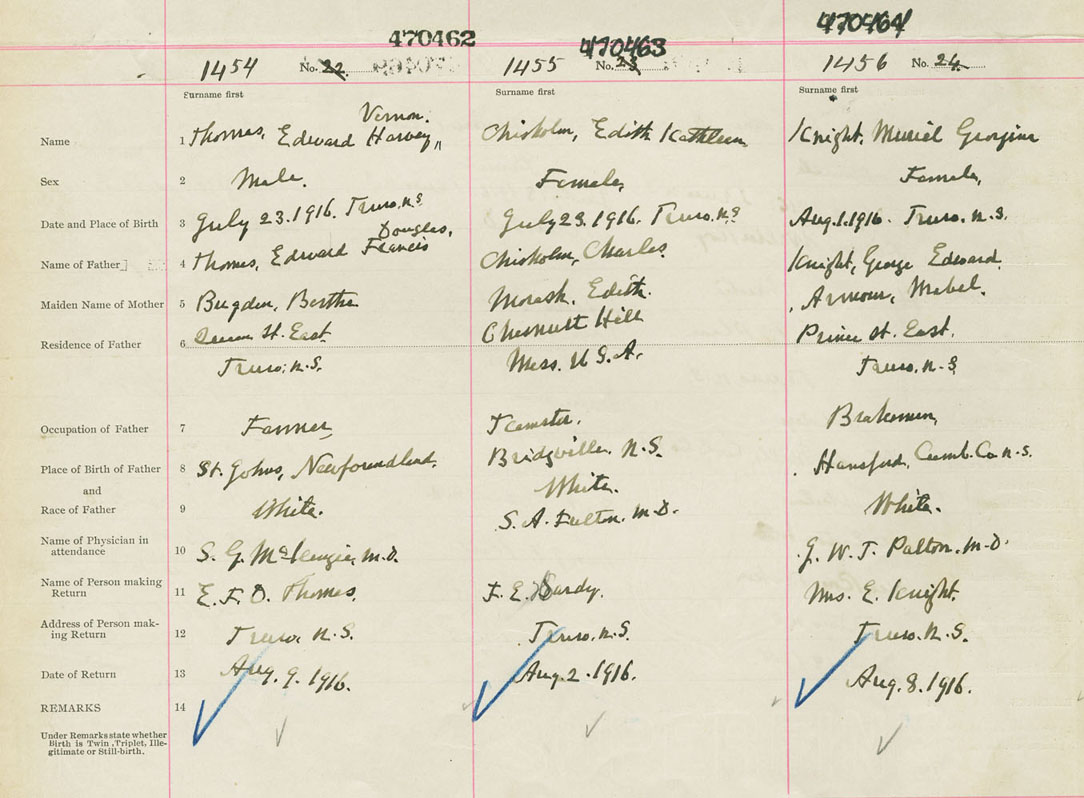 470462 470463 470464
1454 No. 22 1455 No. 23 1456 No. 24
Surname first Surname first Surname first
Vernon.
Name 1 Thomas, Edward Harvey Chisholm, Edith Kathleen Knight, Muriel Georgina
Sex 2 Male. Female, Female,
Date and Place of Birth 3 July 23.1916. Truro, N.S July 23.1916. Truro, N.S Aug.1.1916. Truro, N.S.
Douglas,
Name of Father 4 Thomas, Edward Francis Chisholm, Charles Knight, George Edward
Maiden Name of Mother 5 Bugden, Bertha Morash, Edith. Armour, Mabel.
Residence of Father 6 Queen St. East Chesnutt Hill Prince St. East,
Truro, N.S. Mass. U.S.A. Truro, N.S
Occupation of Father 7 Farmer, Teamster, Brakeman,
Place of Birth of Father 8 St. Johns, Newfoundland, Bridgville, N.S. Hansford, Cumb. Co N.S.
and
Race of Father 9 White. White. White.
Name of Physician in
attendance 10 S. G. McKenzie, M.D. S. A. Fulton, M.D. J. W. T. Patton, M.D.
Name of Person making
Return 11 E. F. D. Thomas, F. E. Hardy. Mrs. E. Knight.
Address of Person mak-
ing Return 12 Truro, N.S. Truro, N.S. Truro, N.S.
Date of Return 13 Aug. 9. 1916. Aug. 2. 1916. Aug. 8. 1916.
REMARKS 14
Under Remarks state whether
Birth is Twin, Triplet, Ille-
gitimate or Still-birth.